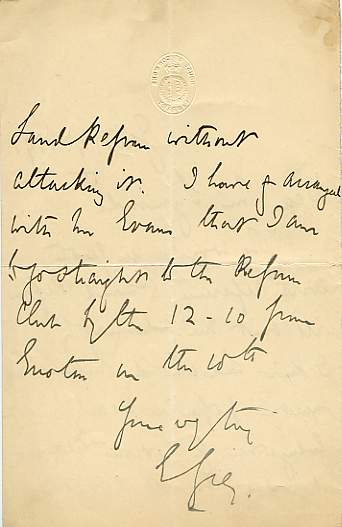 Land Reform without
attacking it. I have arranged
with Mr Evans that I am
to go straight to the Reform
Club by the 12-10 from
Euston on the 10th
Yours very truly